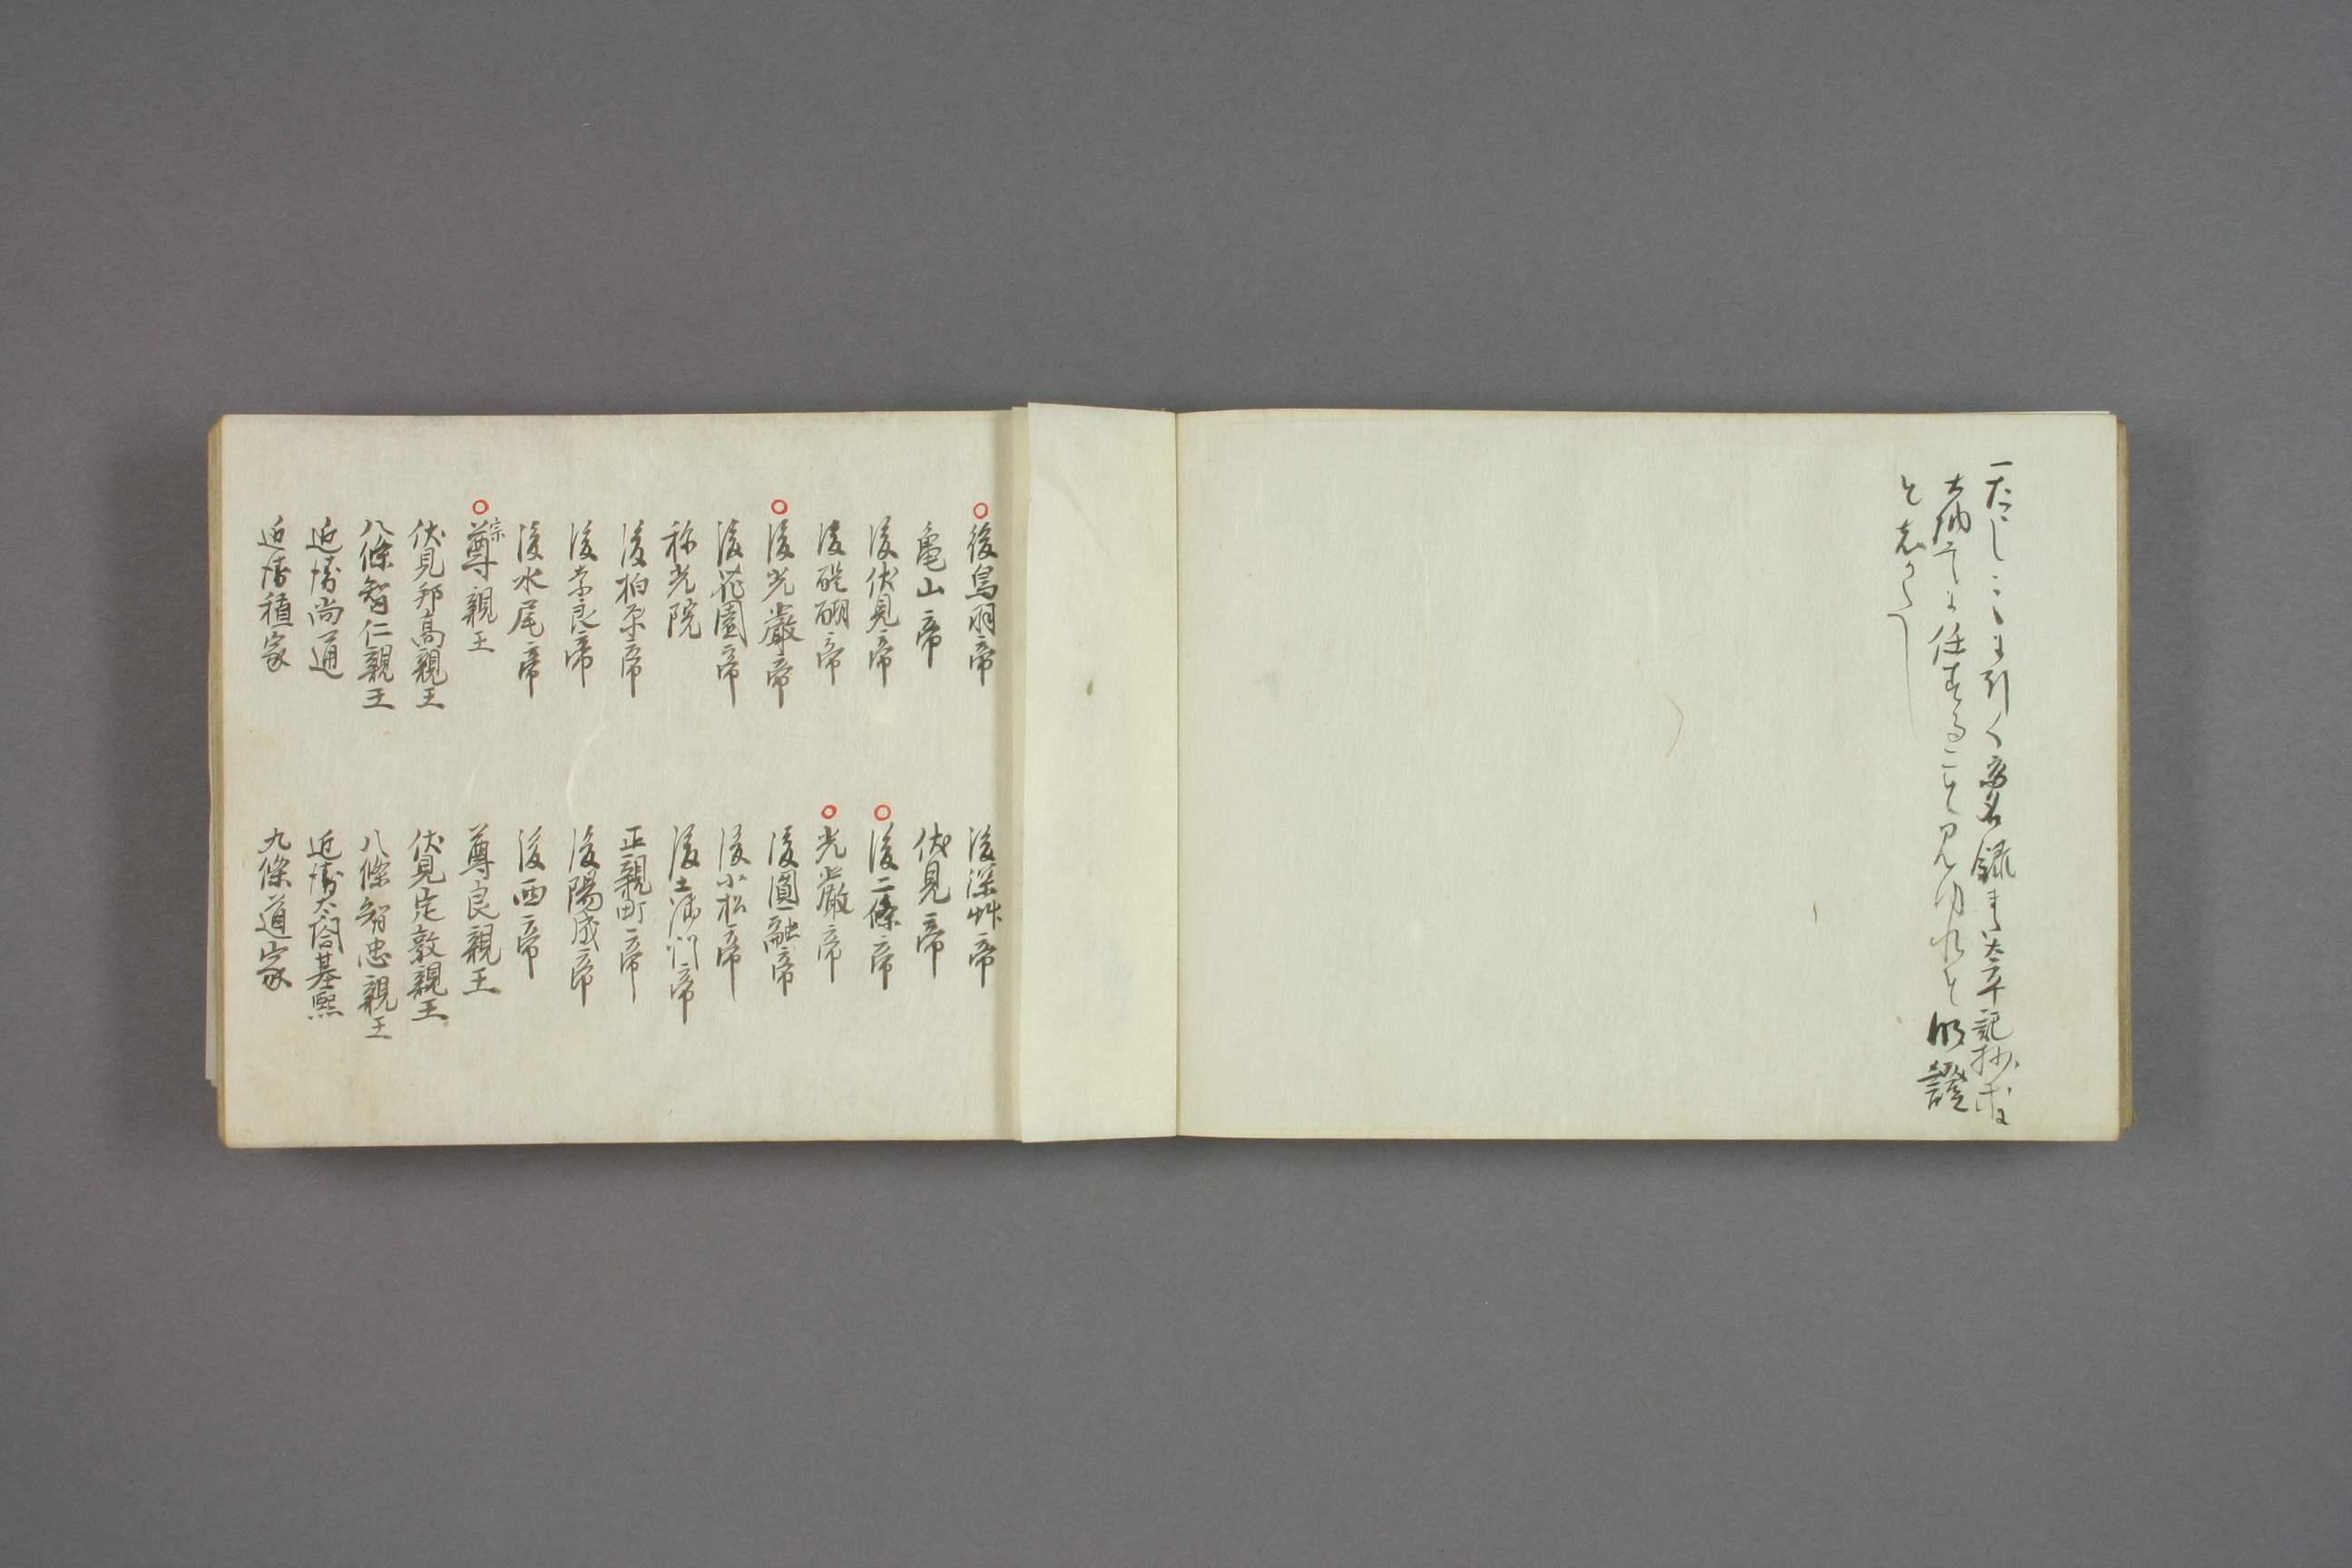 一たしこゝに引く帝名録は太平記抄に
大納言に任することも見ゆれと明證
としかたし
後鳥羽帝
後深艸帝
亀山帝
伏見帝
後伏見帝
後二條帝
後醍醐帝
光嚴帝
後光嚴帝
後圓融帝
後花園帝
後小松帝
称光院
後土御門帝
後柏原帝
正親町帝
後奈良帝
後陽成帝
後水尾帝
後西帝
宗尊親王
尊良親王
伏見邦高親王
伏見定敦親王
八條智仁親王
八條智忠親王
近衛尚通
近衛太閤基熙
近衛稙家
九條道家